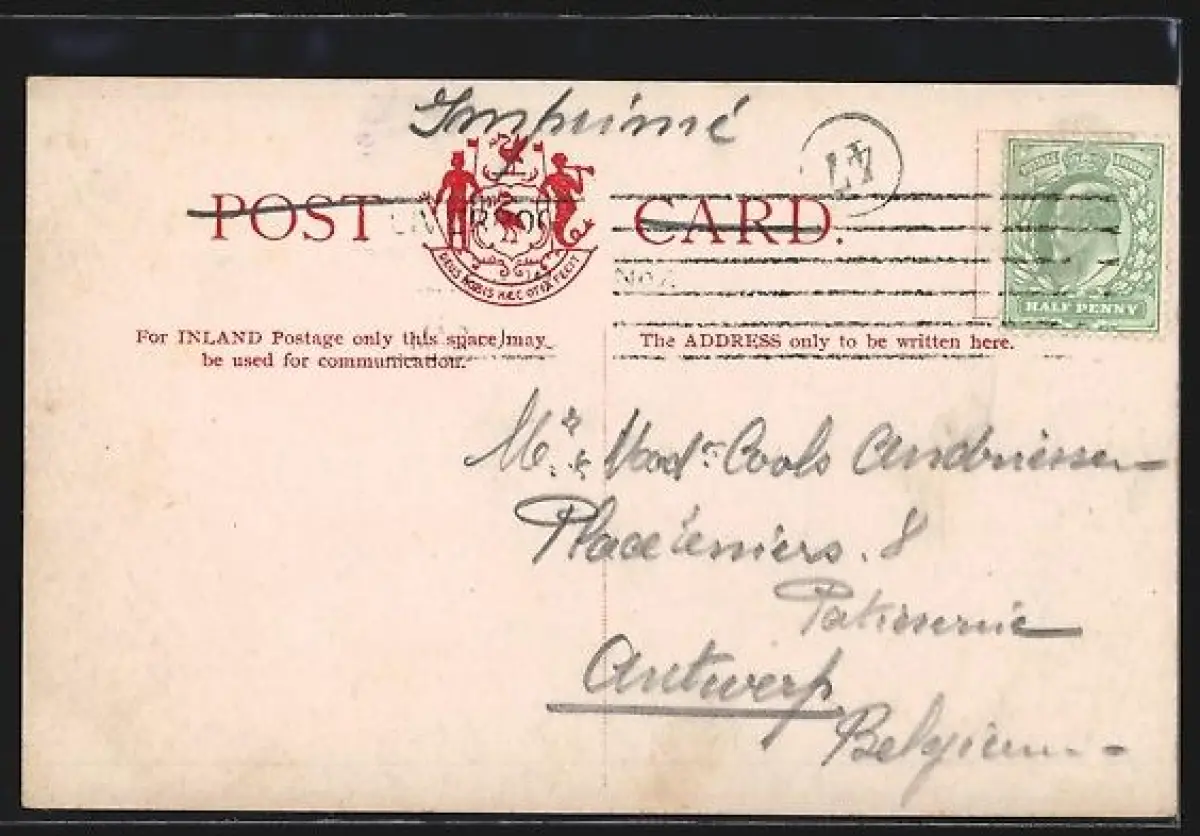 Imprimé
POST CARD.
L7
DEUS NOBIS HÆC OTIA FECIT
HALF PENNY
For INLAND Postage only this space may
be used for communication.
The ADDRESS only to be written here.
Mr & Mad. Cools Andriessen
Place Teniers. 8
Patisserie
Antwerp
Belgium